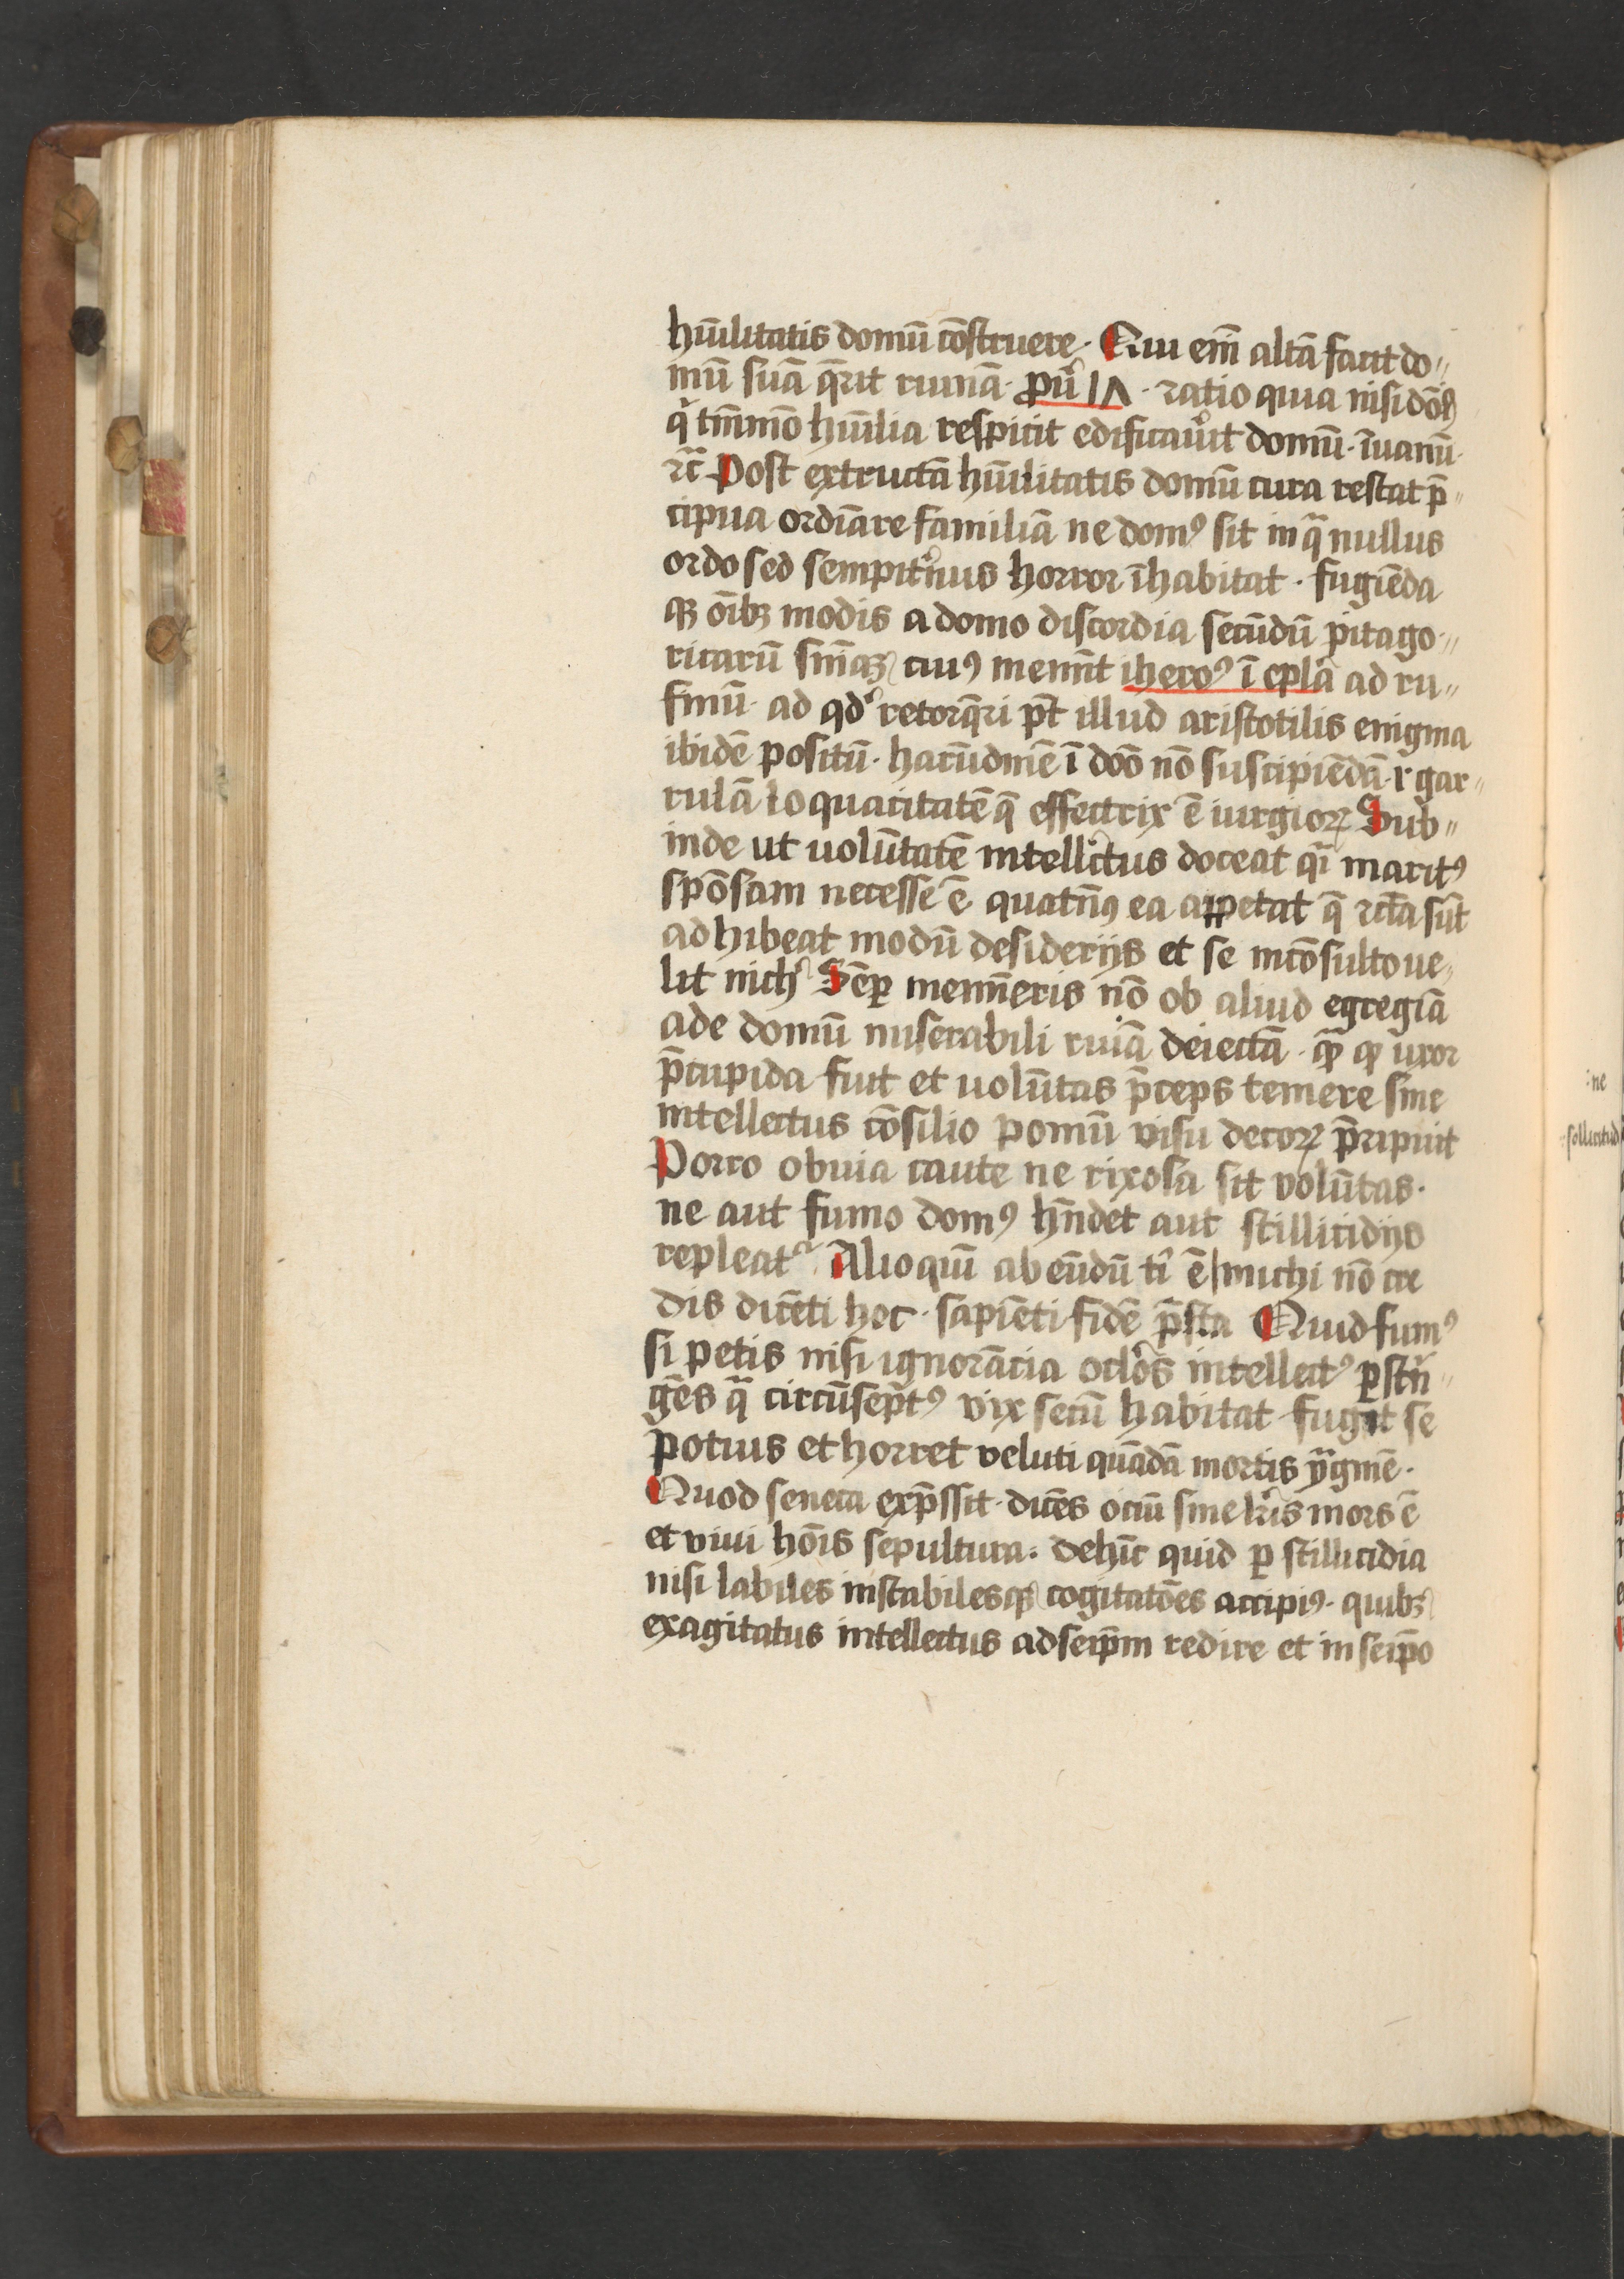 hūılitatis domū cōstruere. Qui em̄ altā facit do〃
mū suā q̄rit ruinā. ꝓu̓ 1Λ. ratio quia nisi dōs
q̇ tm̄mō hūīlia respicit edificaůit domū. īuanū.
⁊c̄ Post extructā hūīlitatis domū cura restat p̄〃
cipua ordīare familiā ne domꝰ sit in qͣ nullus
ordo sed sempit̓nus horror īhabitat. fugiēda
qꝫ oībꝫ modis a domo discordia secūdū pitago〃
ricarū sn̄iaꝝ cuiꝰ memīt iheroꝰ ī epl̓a ad ru〃
finū. ad qd̓ retorq̄ri pt̄ illud aristotilis enigma
ibidē positū. harūdinē ī doō nō suscipiēdā. i̓ gar〃
rulā loquacitatē q̄ effectrix ē iurgioꝝ Sub〃
inde ut uolūtatē intellectus doceat qͣi maritꝰ
spōsam necesse ē quatn̄ꝰ ea appetat q̄ rc̄ta sūt
adhibeat modū desiderijs et se incōsulto ue〃
lit nich̓ Sēꝑ memīeris nō ob aliud egregiā
ade domū miserabili ruīā deiectā. qͣꝫ ꝙ uxor
p̄cupida fuit et uolūtas p̄ceps temere sine
intellectus cōsilio pomū visu decoꝝ p̄ripuit
Porro obuia caute ne rixosa sit volūtas.
ne aut fumo domꝰ hn̄det aut stillicidijs
repleatᷣ Alioquī abeūdū tī ē michi nō cre
dis dicēti hoc. sapiēti fidē p̄sta Quid fumꝰ
si petis nisi ignorācia ocl̓os intellectꝰ ꝑstrī〃
gēs qͣ circūsep̄tꝰ vix secū habitat fugit se
potius et horret veluti quādā mortis ymͣginē.
Quod seneca exp̄ssit. dicēs ociū sine lr̄is mors ē
et viui hōīs sepultura. dehīc quid ꝑ stillicidia
nisi labiles instabilesqꝫ cogitatōes accipiꝰ. quibꝫ
exagitatus intellectus ad seip̄m redire et in seip̄o
ne
sollicitud